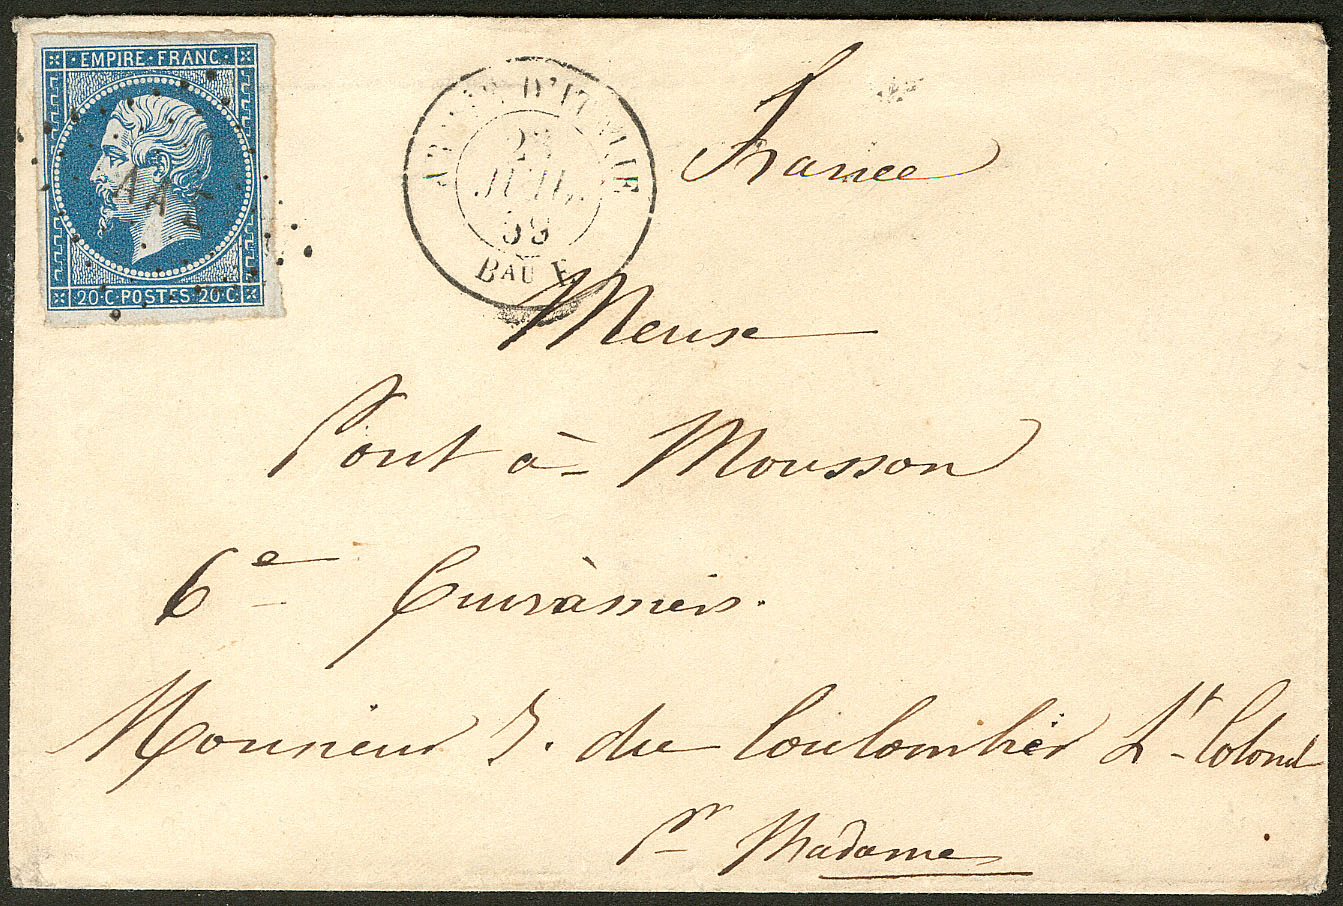 EMPIRE FRANC
20·C·POSTES·20·C
ARMÉE D'ITALIE
28
JUIL.
59
BAU
France
Meuse
Pont à Mousson
6e Cuirassiers.
Monsieur du Coulombier Lt Colonel
pr Madame